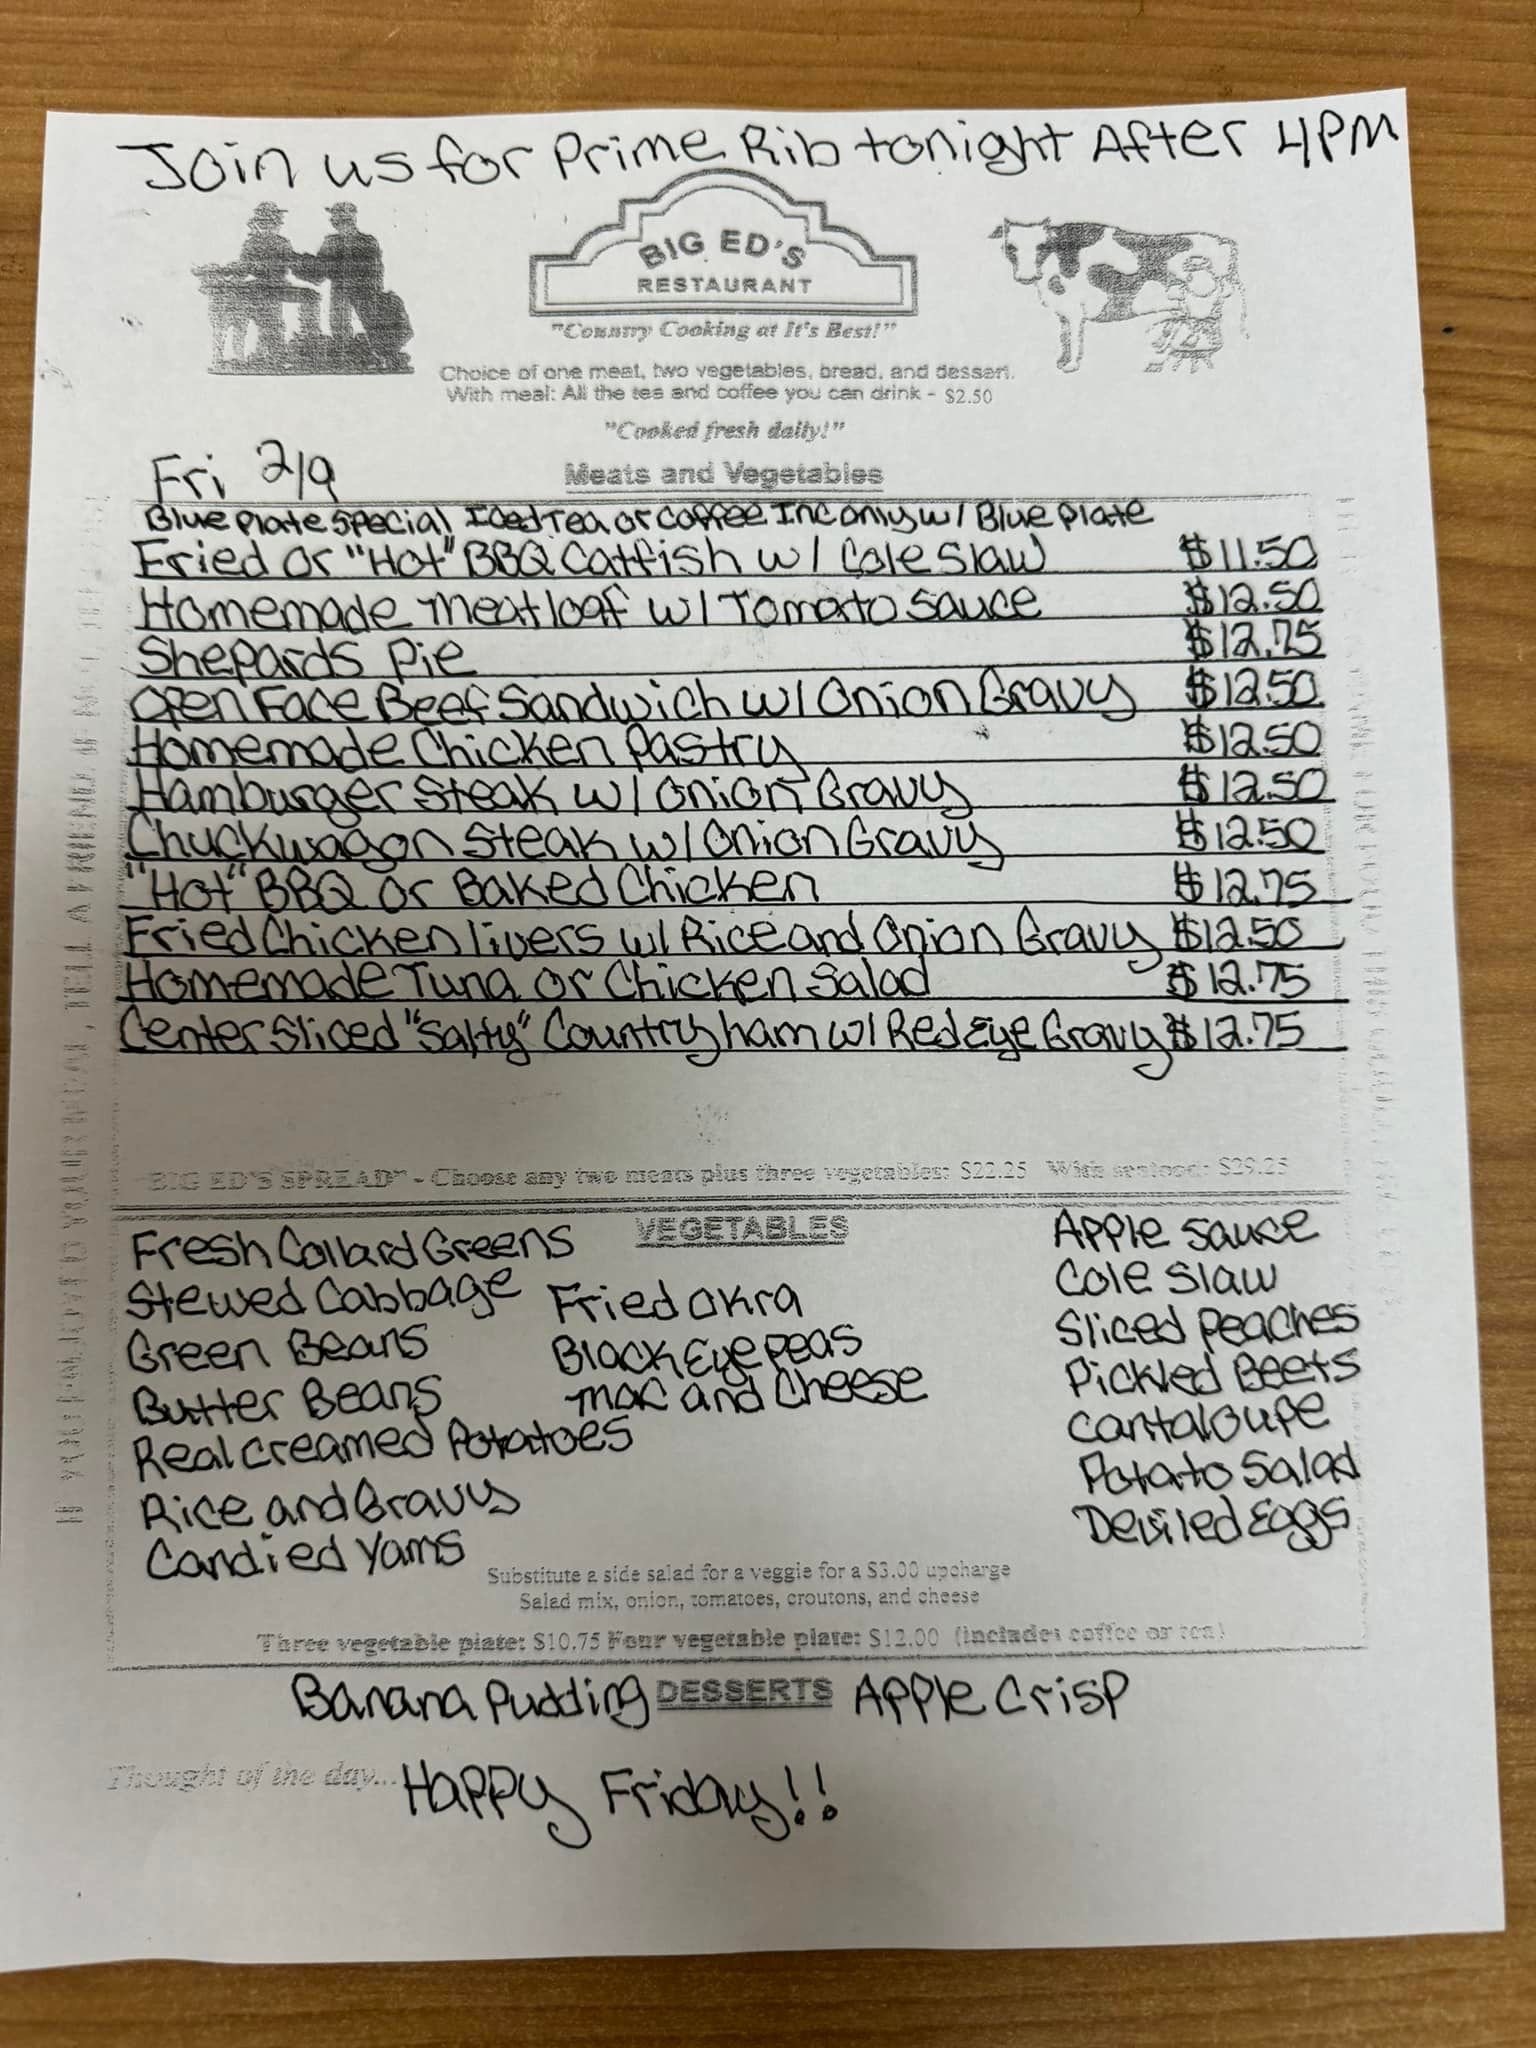 Join us for Prime Rib tonight After 4PM
BIG ED'S
RESTAURANT
"Country Cooking at It's Best!"
Choice of one meat, two vegetables, bread, and dessert.
With meal: All the tea and coffee you can drink - $2.50
"Cooked fresh daily!"
Fri 2/9
Meats and Vegetables
Blue Plate Special Iced Tea or Coffee Inc only w/ Blue Plate
Fried or "Hot" BBQ Catfish w/ Cole Slaw $11.50
Homemade Meatloaf w/ Tomato Sauce $12.50
Shepards Pie $12.75
Open Face Beef Sandwich w/ Onion Gravy $12.50
Homemade Chicken Pastry $12.50
Hamburger Steak w/ Onion Gravy $12.50
Chuckwagon Steak w/ Onion Gravy $12.50
"Hot" BBQ or Baked Chicken $12.75
Fried Chicken livers w/ Rice and Onion Gravy $12.50
Homemade Tuna or Chicken Salad $12.75
Center Sliced "Salty" Country ham w/ Red Eye Gravy $12.75
BIG ED'S SPREAD" - Choose any two meats plus three vegetables: $22.25 With seafood: $29.25
VEGETABLES
Fresh Collard Greens
Stewed Cabbage
Green Beans
Butter Beans
Real Creamed Potatoes
Rice and Gravy
Candied Yams
Fried Okra
Black Eye Peas
Mac and Cheese
Apple Sauce
Cole Slaw
Sliced Peaches
Pickled Beets
Cantaloupe
Potato Salad
Deviled Eggs
Substitute a side salad for a veggie for a $3.00 upcharge
Salad mix, onion, tomatoes, croutons, and cheese
Three vegetable plate: $10.75 Four vegetable plate: $12.00 (includes coffee or tea)
Banana Pudding DESSERTS Apple Crisp
Thought of the day... Happy Friday!!